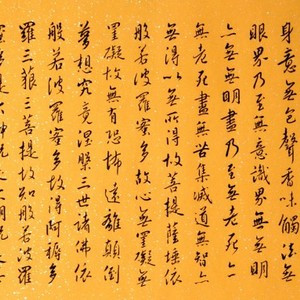 身意無色聲香味觸法無
眼界乃至無意識界無無明
亦無無明盡乃至無老死亦
無老死盡無苦集滅道無智亦
無得以無所得故菩提薩埵依
般若波羅蜜多故心無罣礙無
罣礙故無有恐怖遠離顛倒
夢想究竟涅槃三世諸佛依
般若波羅蜜多故得阿耨多
羅三藐三菩提故知般若波羅